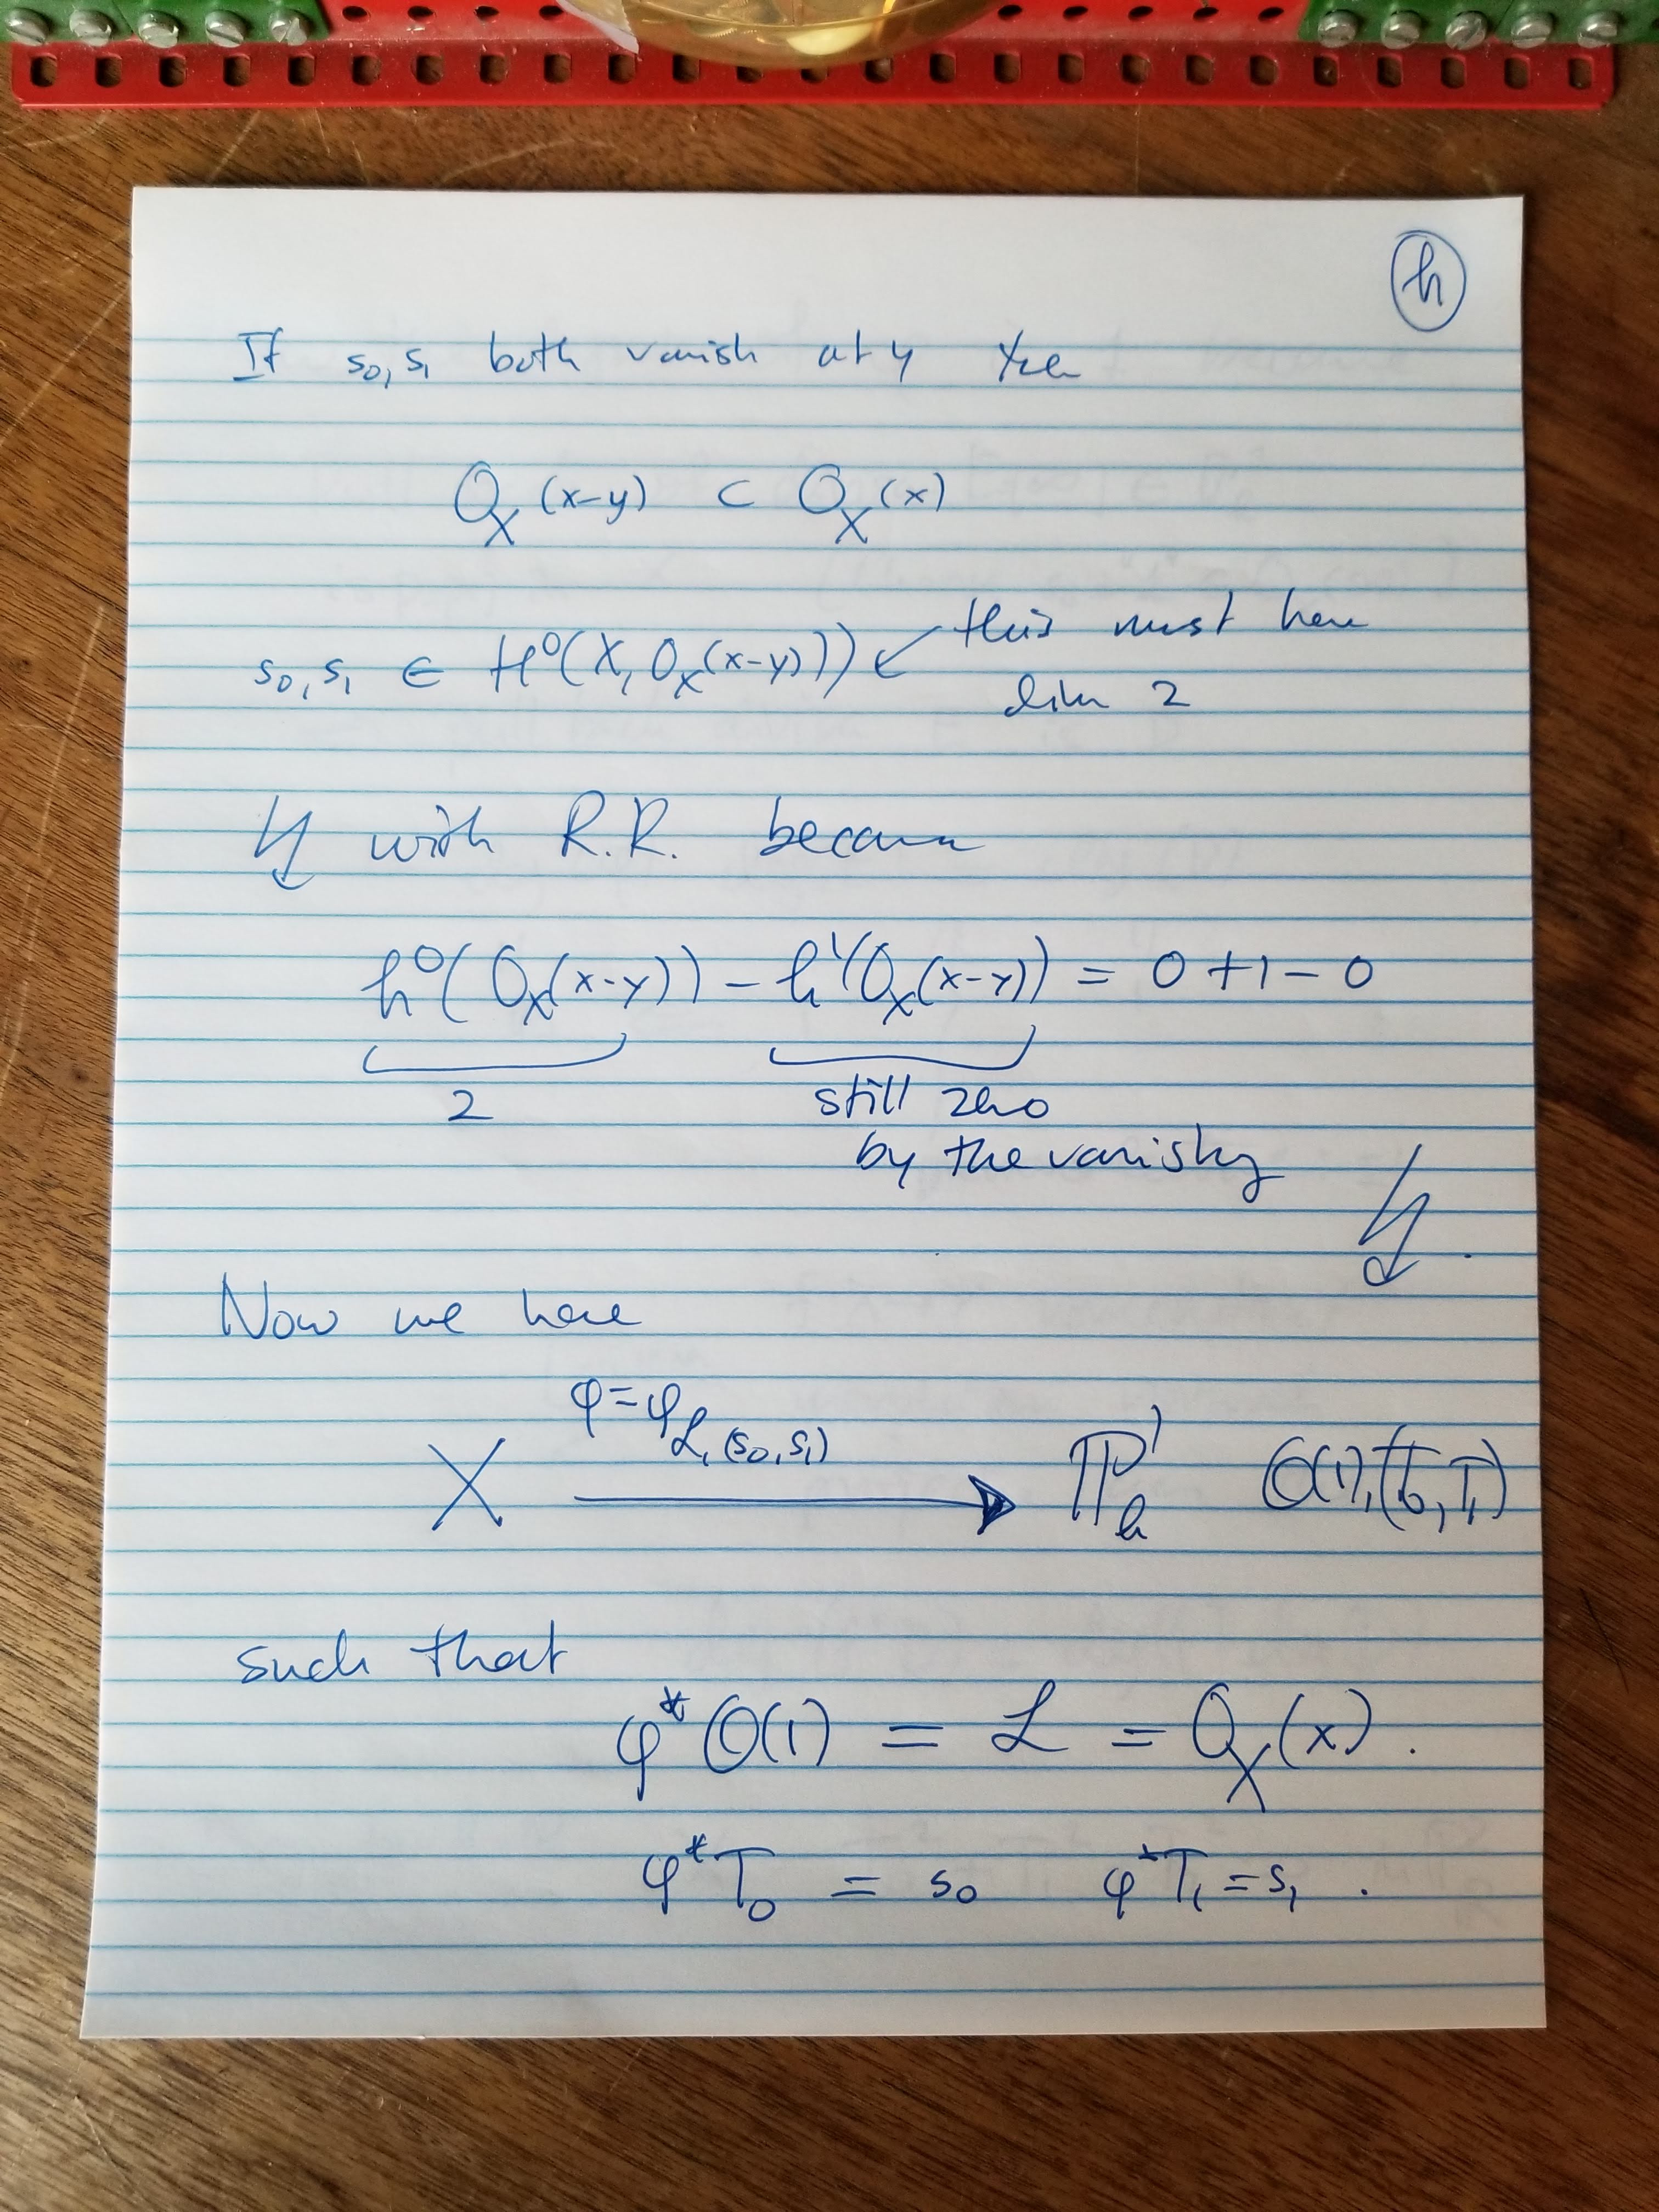 h
If s₀, s₁ both vanish at y then
O_X(x-y) ⊂ O_X(x)
s₀, s₁ ∈ H⁰(X, O_X(x-y)) ↙ this must have
dim 2
↯ with R.R. because
h⁰(O_X(x-y)) - h¹(O_X(x-y)) = 0 + 1 - 0
2 still zero
by the vanishing
↯.
Now we have
φ = φ_{L, (s₀, s₁)}
X ⟶ ℙ¹_k O(1), (T₀, T₁)
such that
φ*O(1) = L = O_X(x).
φ*T₀ = s₀ φ*T₁ = s₁.